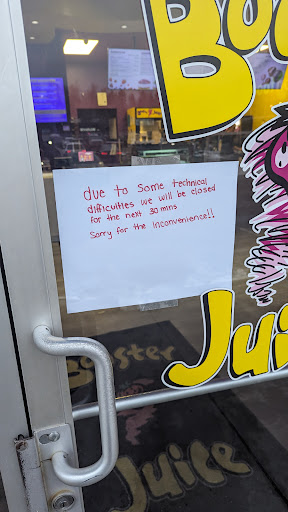 Booster
due to some technical
difficulties we will be closed
for the next 30 mins
Sorry for the inconvenience!!
Juice
Booster
Juice